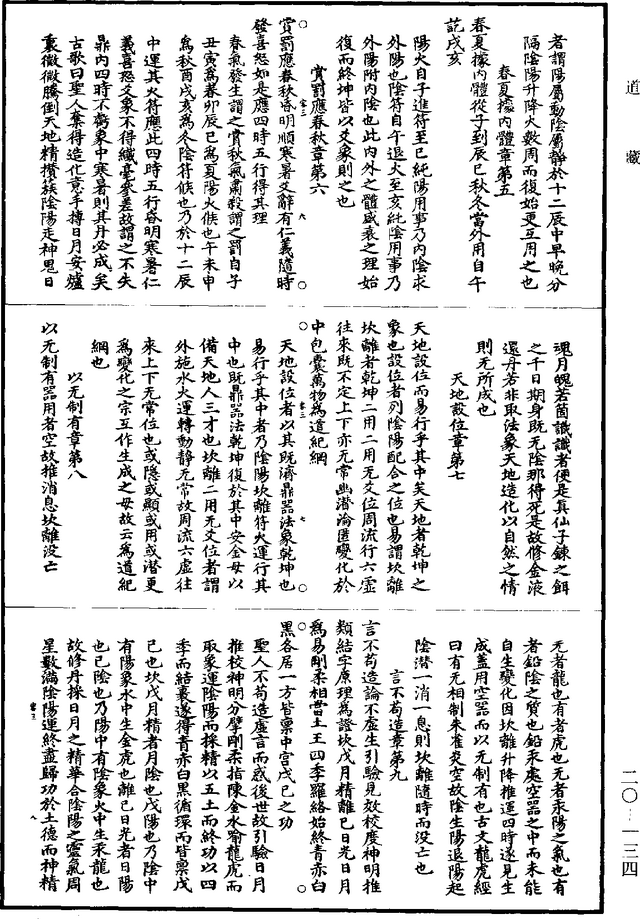 道藏
者謂陽屬動陰屬靜於十二辰中早晚分
隔陰陽升降火數周而復始更互用之也
春夏據內體章第五
春夏據內體從子到辰巳秋冬當外用自午
訖戌亥
陽火自子進符至巳純陽用事乃內陰求
外陽也陰符自午退火至亥純陰用事乃
外陽附內陰也此內外之體盛衰之理始
復而終坤皆以爻象則之也
賞罰應春秋章第六
賞罰應春秋昏明順寒暑爻辭有仁義隨時
發喜怒如是應四時五行得其理
春氣發生謂之賞秋氣肅殺謂之罰自子
丑寅為春卯辰巳為夏陽火候也午未申
為秋酉戌亥為冬陰符候也乃於十二辰
中運其火符應此四時五行昏明寒暑仁
義喜怒爻象不得纖毫參差故謂之不失
鼎內四時不虧象中寒暑則其丹必成矣
古歌曰聖人奪得造化意手摶日月安爐
裏微微騰倒天地精攢簇陰陽走神鬼日
魂月魄若箇識識者便是真仙子鍊之餌
之千日期身既无陰那得死是故修金液
還丹若非取法象天地造化以自然之情
則无所成也
天地設位章第七
天地設位而易行乎其中矣天地者乾坤之
象也設位者列陰陽配合之位也易謂坎離
坎離者乾坤二用二用无爻位周流行六虛
往來既不定上下亦无常幽潛淪匿變化於
中包囊萬物為道紀綱
天地設位者以其既濟鼎器法象乾坤也
易行乎其中者乃陰陽坎離符火運行其
中也既鼎器法乾坤復於其中安金母以
備天地人三才也坎離二用无爻位者謂
外施水火運轉動靜无常故周流六虛往
來上下无常位也或隱或顯或用或潛更
為變化之宗互作生成之母故云為道紀
綱也
以无制有章第八
以无制有器用者空故推消息坎離没亡
无者龍也有者虎也无者汞陽之氣也有
者鉛陰之質也鉛汞處空器之中而未能
自生變化因坎離升降推運四時遂見生
成蓋用空器而以无制有也古文龍虎經
曰有无相制朱雀炎空故陰生陽退陽起
陰潛一消一息則坎離隨時而没亡也
言不苟造章第九
言不苟造論不虛生引驗見效校度神明推
類結字原理為證坎戊月精離己日光日月
為易剛柔相當土王四季羅絡始終青赤白
黑各居一方皆稟中宫戊己之功
聖人不苟造虛言而惑後世故引驗日月
推校神明分擘剛柔指陳金水喻龍虎而
取象運陰陽而採精以五土而終功以四
季而結裹遂得青赤白黑循環而皆稟戊
己也坎戊月精者月陰也戊陽也乃陰中
有陽象水中生金虎也離己日光者日陽
也己陰也乃陽中有陰象火中生汞龍也
故修丹採日月之精華合陰陽之靈氣周
星數滿陰陽運終盡歸功於土德而神精
二〇-一三四